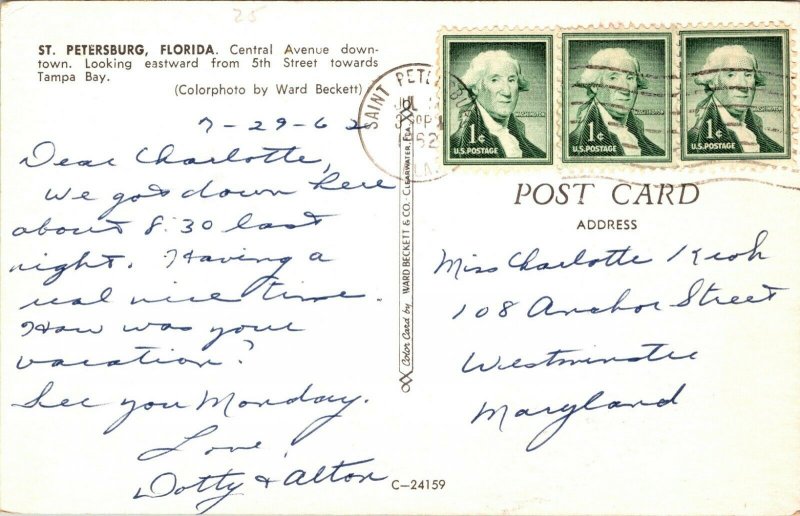 25
ST. PETERSBURG, FLORIDA. Central Avenue down-
town. Looking eastward from 5th Street towards
Tampa Bay.
(Colorphoto by Ward Beckett)
7-29-62
Dear Charlotte,
We got down here
about 8:30 last
night. Having a
real nice time.
How was your
vacation?
See you Monday.
Love,
Dotty & Alton
C-24159
Color Card by WARD BECKETT & CO. CLEARWATER, FLA.
SAINT PETERSBURG
JUL
PM
1962
FLA.
WASHINGTON
1¢
U.S. POSTAGE
WASHINGTON
1¢
U.S. POSTAGE
WASHINGTON
1¢
U.S. POSTAGE
POST CARD
ADDRESS
Miss Charlotte
108 Anchor Street
Westminster
Maryland